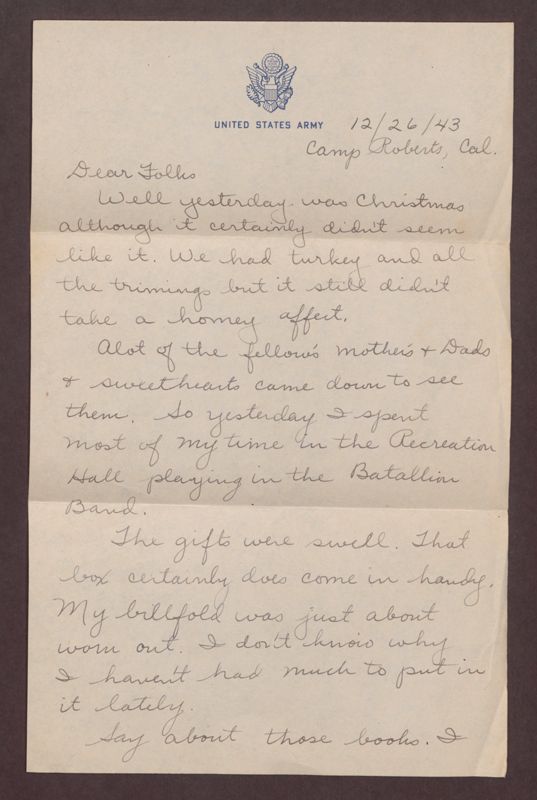 UNITED STATES ARMY
12/26/43
Camp Roberts, Cal.
Dear Folks
Well yesterday was Christmas
although it certainly didn't seem
like it. We had turkey and all
the trimings but it still didn't
take a homey affect.
Alot of the fellow's mother's + Dads
+ sweethearts came down to see
them. So yesterday I spent
most of my time in the Recreation
Hall playing in the Batallion
Band.
The gifts were swell. That
box certainly does come in handy.
My billfold was just about
worn out. I don't know why
I haven't had much to put in
it lately.
Say about those books. I